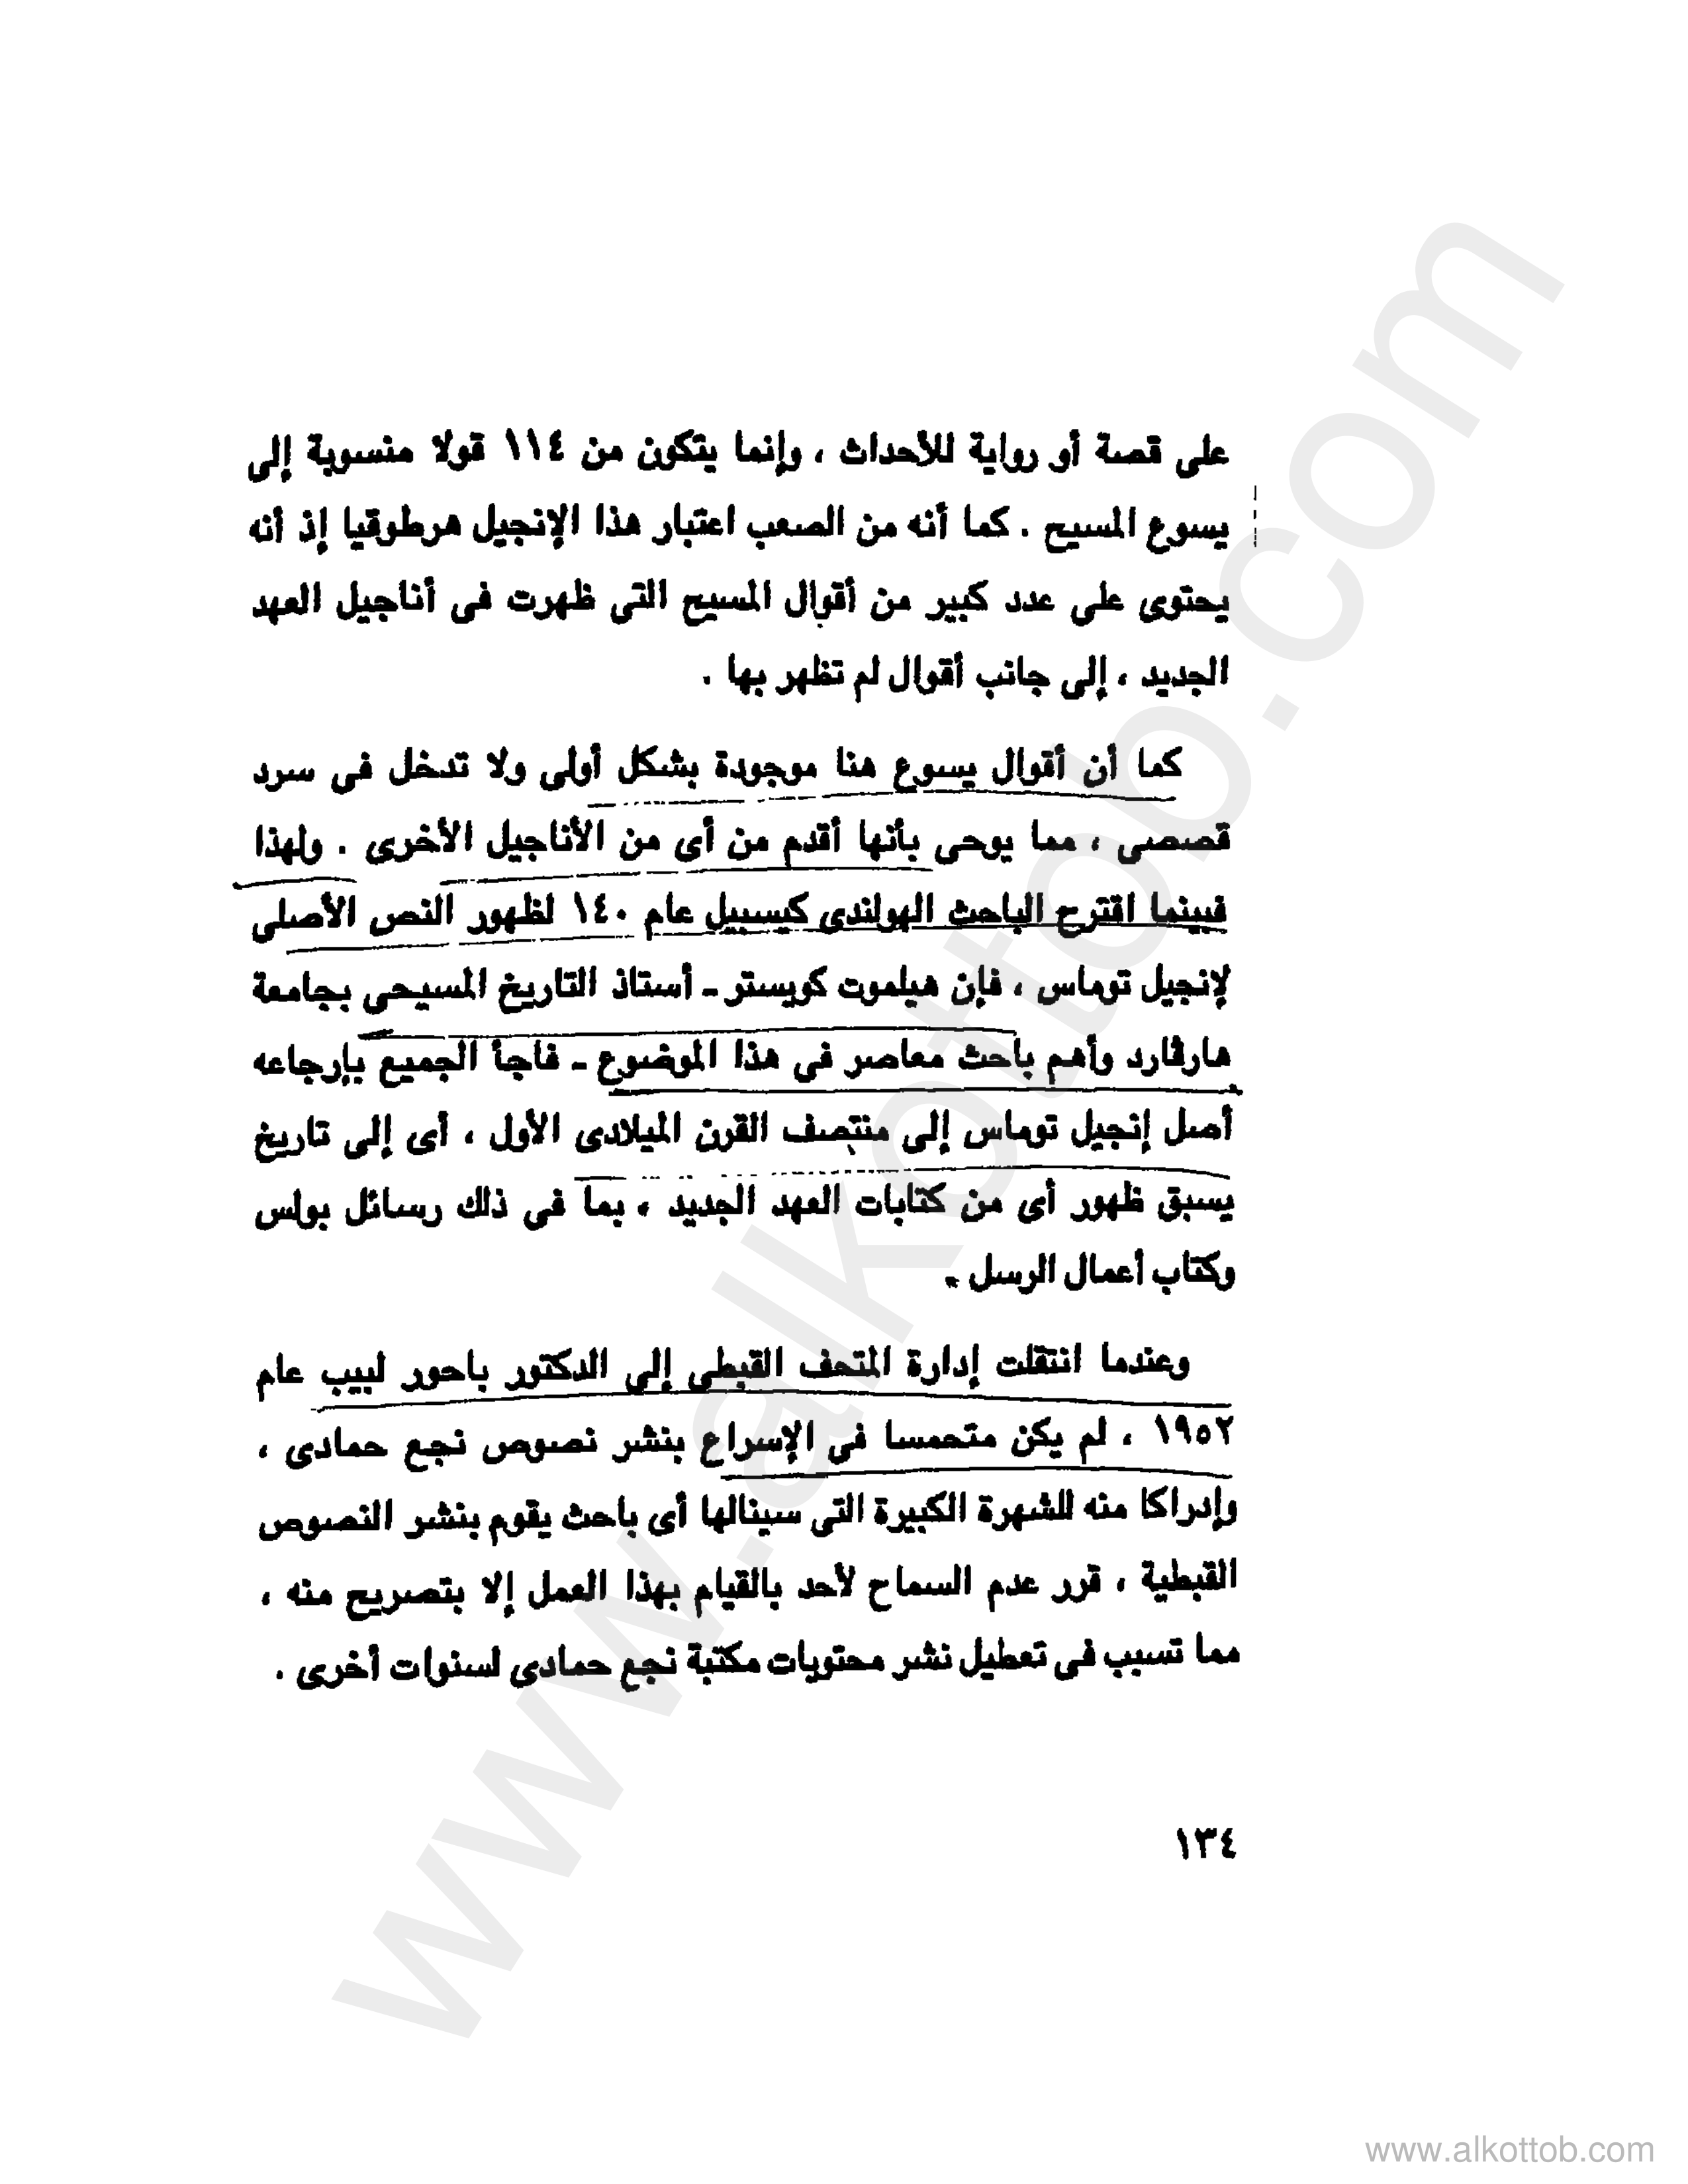 على قصة أو رواية للأحداث ، وإنما يتكون من ١١٤ قولا منسوبة إلى
يسوع المسيح . كما أنه من الصعب اعتبار هذا الإنجيل هرطوقيا إذ أنه
يحتوى على عدد كبير من أقوال المسيح التى ظهرت فى أناجيل العهد
الجديد ، إلى جانب أقوال لم تظهر بها .
كما أن أقوال يسوع هنا موجودة بشكل أولى ولا تدخل فى سرد
قصصى ، مما يوحى بأنها أقدم من أى من الأناجيل الأخرى . ولهذا
فبينما اقترح الباحث الهولندى كيسبيل عام ١٤٠ لظهور النص الأصلى
لإنجيل توماس ، فإن هيلموت كويستر ـ أستاذ التاريخ المسيحى بجامعة
هارڤارد وأهم باحث معاصر فى هذا الموضوع ـ فاجأ الجميع بإرجاعه
أصل إنجيل توماس إلى منتصف القرن الميلادى الأول ، أى إلى تاريخ
يسبق ظهور أى من كتابات العهد الجديد ، بما فى ذلك رسائل بولس
وكتاب أعمال الرسل .
وعندما انتقلت إدارة المتحف القبطى إلى الدكتور باحور لبيب عام
١٩٥٢ ، لم يكن متحمسا فى الإسراع بنشر نصوص نجع حمادى ،
وإدراكا منه للشهرة الكبيرة التى سينالها أى باحث يقوم بنشر النصوص
القبطية ، قرر عدم السماح لأحد بالقيام بهذا العمل إلا بتصريح منه ،
مما تسبب فى تعطيل نشر محتويات مكتبة نجع حمادى لسنوات أخرى .
١٣٤
www.alkottob.com
www.alkottob.com